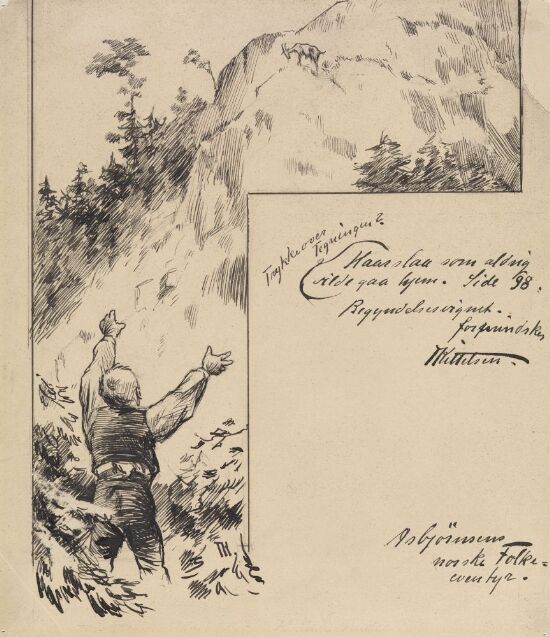 Trykke over
Tegningen?
Haarslaa som aldrig
vilde gaa hjem. Side 98.
Begyndelsesvignet.
TKittelsen.
Asbjörnsens
norske Folke=
eventyr.